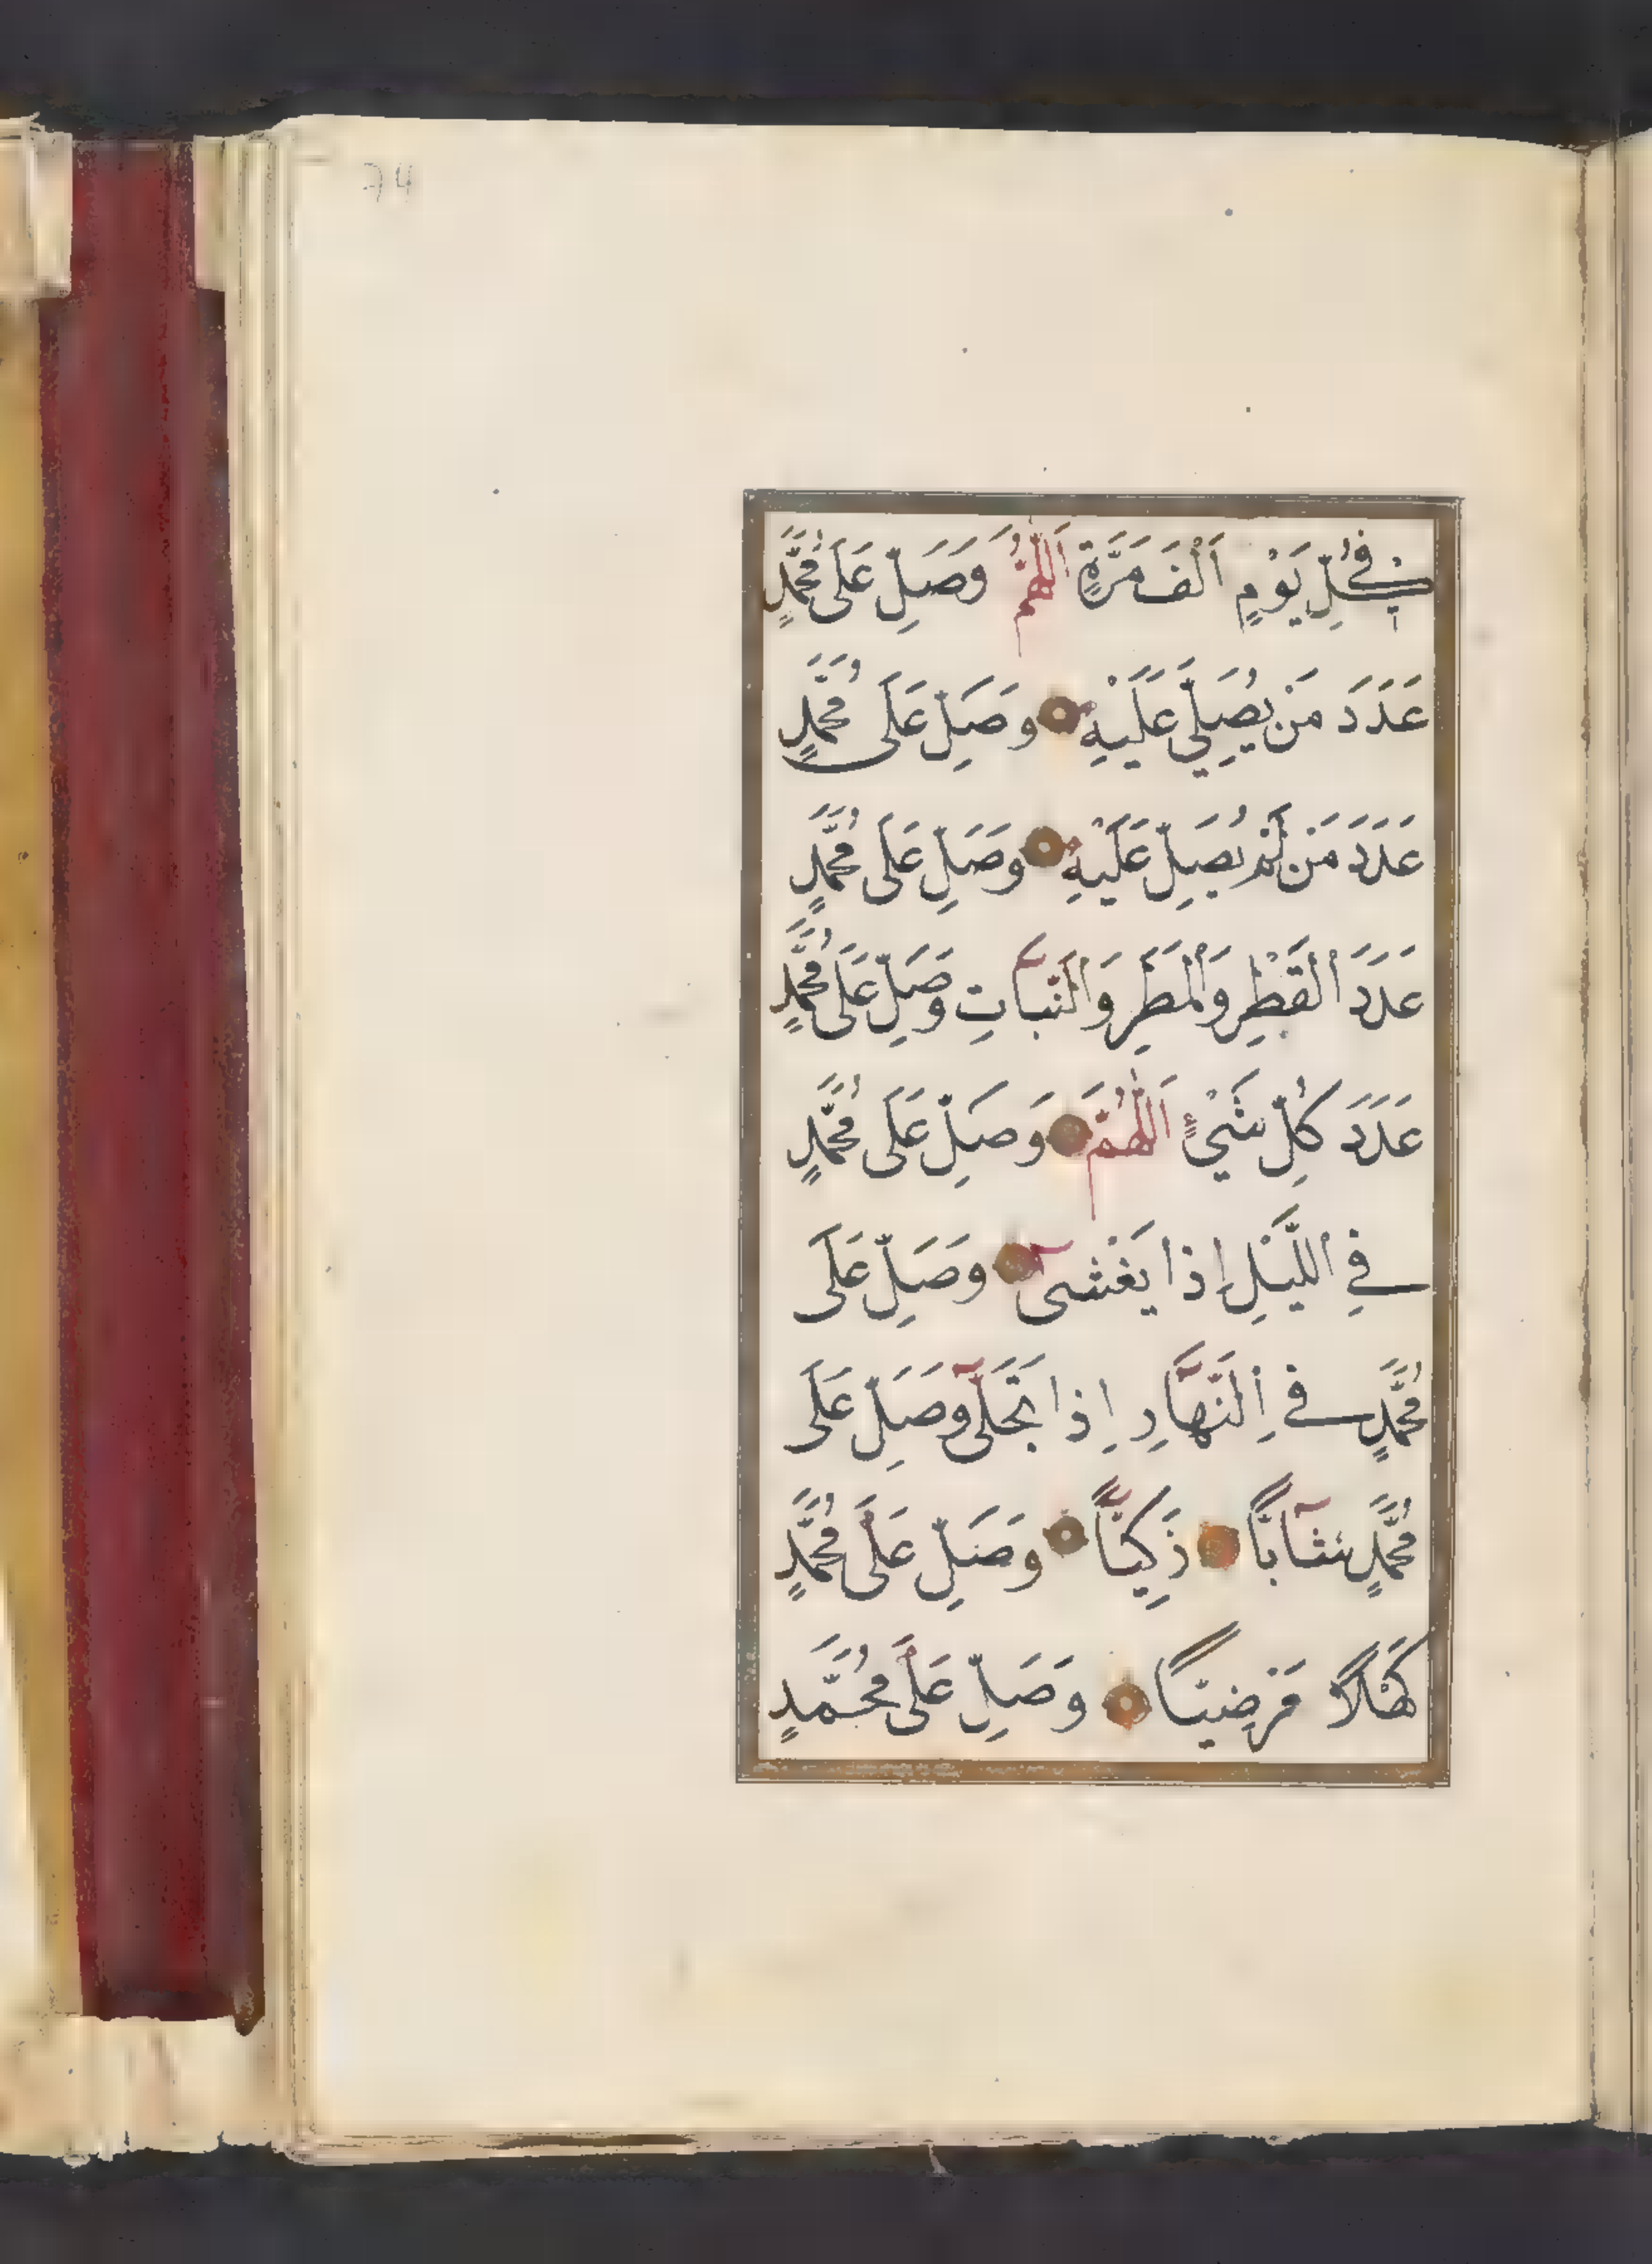 74
فِي كُلِّ يَوْمٍ اَلْفَ مَرَّةٍ اَللّٰهُمَّ وَصَلِّ عَلَى مُحَمَّدٍ
عَدَدَ مَنْ يُصَلِّي عَلَيْهِ وَصَلِّ عَلَى مُحَمَّدٍ
عَدَدَ مَنْ لَمْ يُصَلِّ عَلَيْهِ وَصَلِّ عَلَى مُحَمَّدٍ
عَدَدَ اَلْقَطْرِ وَالْمَطَرِ وَالنَّبَاتِ وَصَلِّ عَلَى مُحَمَّدٍ
عَدَدَ كُلِّ شَيْءٍ اَللّٰهُمَّ وَصَلِّ عَلَى مُحَمَّدٍ
فِي اللَّيْلِ اِذَا يَغْشَى وَصَلِّ عَلَى
مُحَمَّدٍ فِي النَّهَارِ اِذَا تَجَلَّى وَصَلِّ عَلَى
مُحَمَّدٍ شَآبًّا ذَكِيًّا وَصَلِّ عَلَى مُحَمَّدٍ
كَهْلًا مَرْضِيًّا وَصَلِّ عَلَى مُحَمَّدٍ